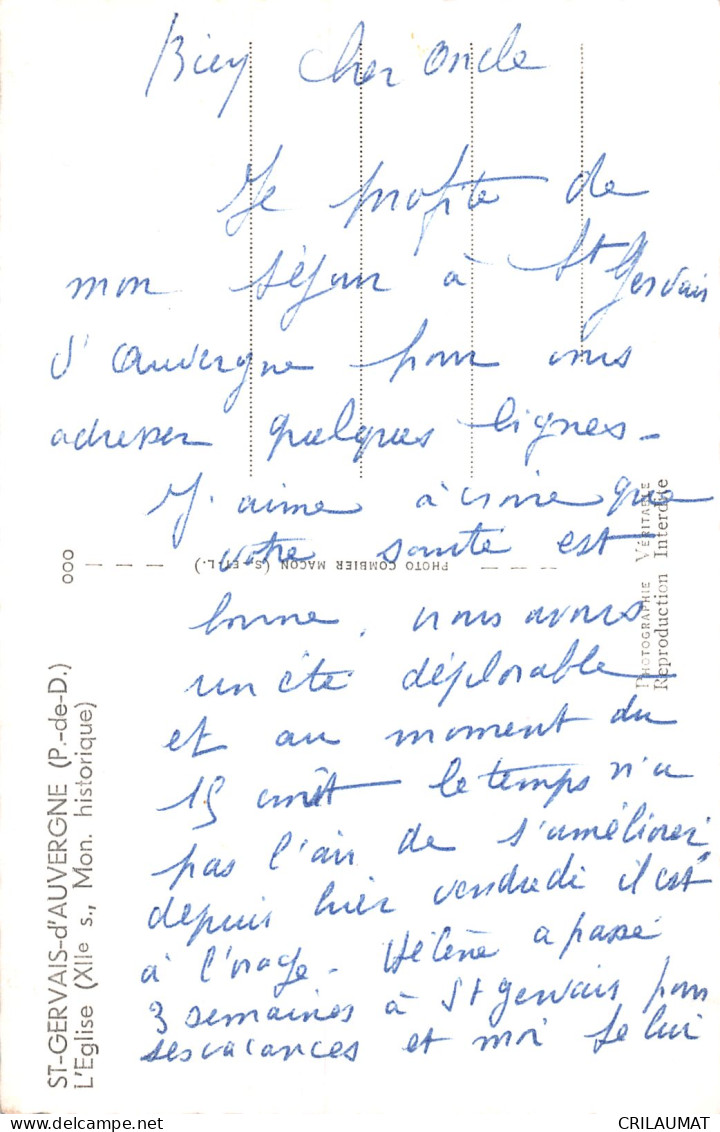 Bien cher oncle
Je profite de
mon séjour à St Gervais
d'auvergne pour vous
adresser quelques lignes -
J'aime à croire que
votre santé est
bonne, nous avons
un été déplorable
et au moment du
15 août le temps n'a
pas l'air de s'améliorer
depuis hier vendredi il est
à l'orage - Hélène a passé
3 semaines à St gervais pour
ses vacances et moi je lui
ST-GERVAIS-d'AUVERGNE (P.-de-D.)
L'Eglise (XIIe s., Mon. historique)
000
PHOTO COMBIER MACON (S.-ET-L.)
PHOTOGRAPHIE VÉRITABLE
Reproduction Interdite
CRILAUMAT